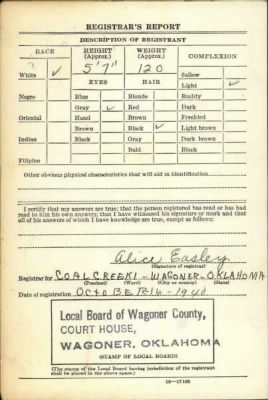 REGISTRAR'S REPORT
DESCRIPTION OF REGISTRANT
RACE HEIGHT (Approx.) WEIGHT (Approx.) COMPLEXION
5' 7" 120
White ✓ Sallow
EYES HAIR Light ✓
Negro Blue Blonde Ruddy
Gray ✓ Red Dark
Oriental Hazel Brown Freckled
Brown Black ✓ Light brown
Indian Black Gray Dark brown
Bald Black
Filipino
Other obvious physical characteristics that will aid in identification
I certify that my answers are true; that the person registered has read or has had
read to him his own answers; that I have witnessed his signature or mark and that
all of his answers of which I have knowledge are true, except as follows:
Alice Easley
(Signature of registrar)
Registrar for COAL CREEK 1 - WAGONER - OKLAHOMA
(Precinct) (Ward) (City or county) (State)
Date of registration OctoBER-16-1940
Local Board of Wagoner County,
COURT HOUSE,
WAGONER, OKLAHOMA
(STAMP OF LOCAL BOARD)
(The stamp of the Local Board having jurisdiction of the registrant
shall be placed in the above space.)
16-17105